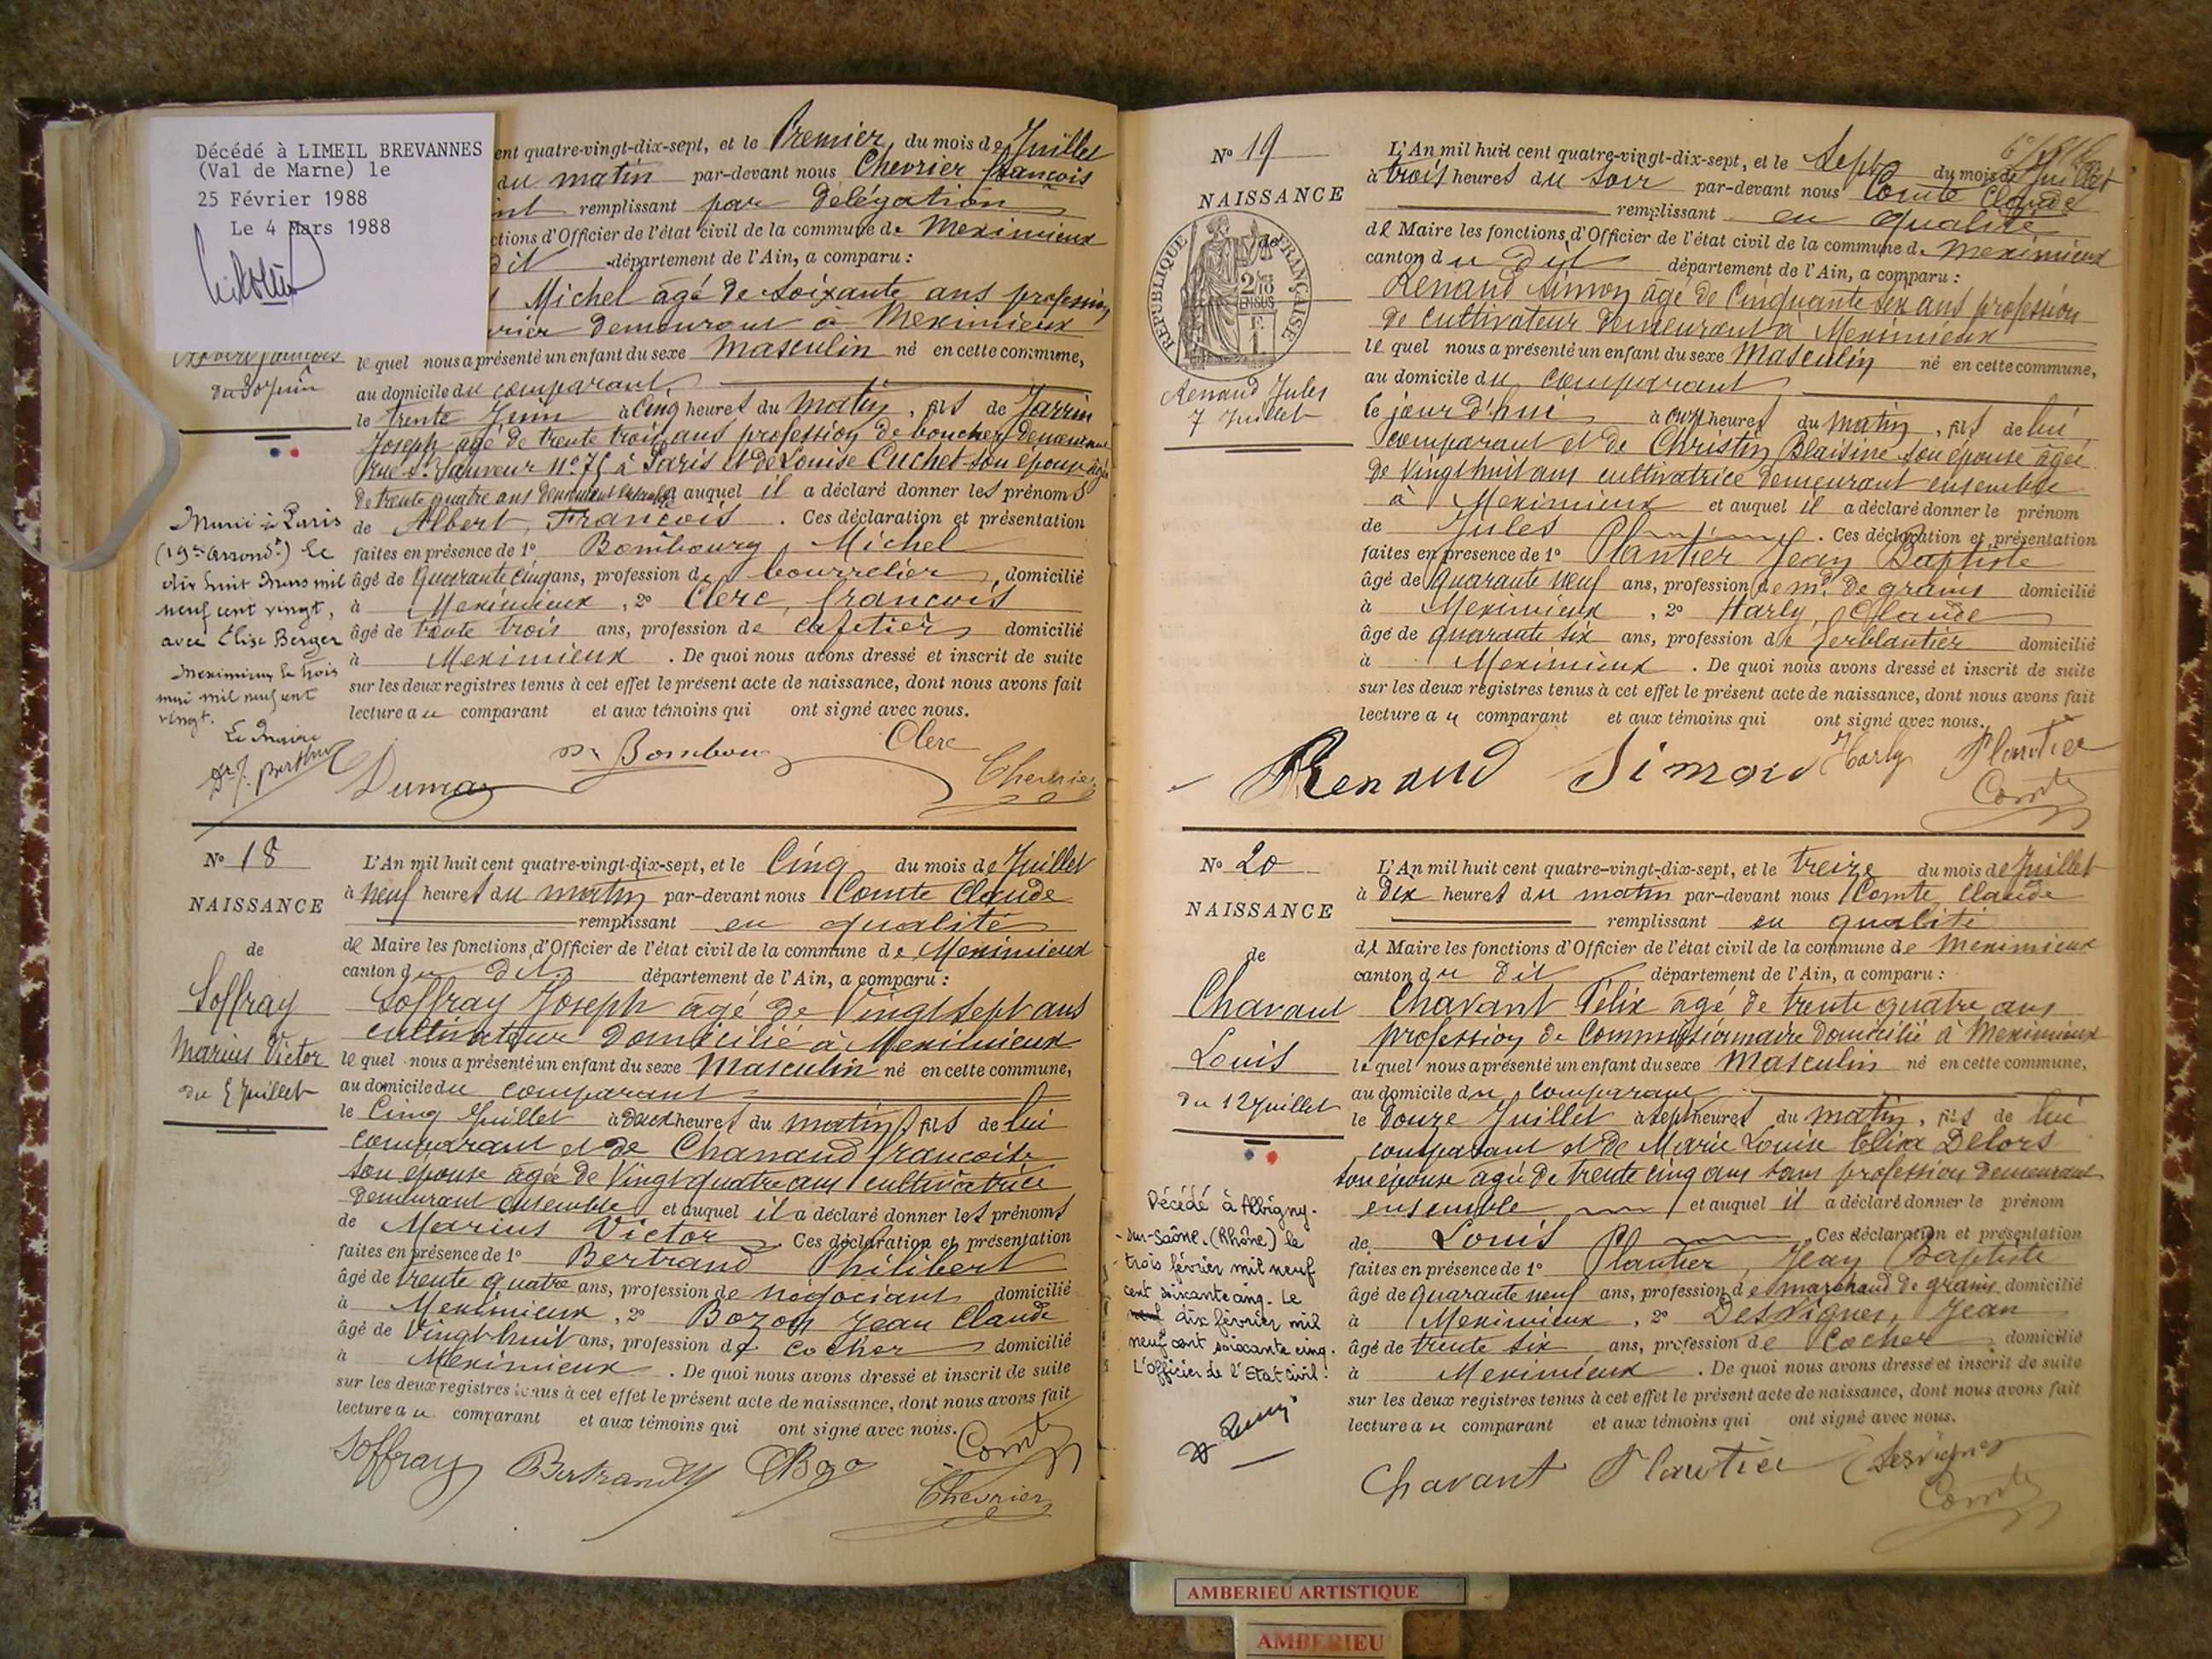 Décédé à LIMEIL BREVANNES
(Val de Marne) le
25 Février 1988
Le 4 Mars 1988
ent quatre-vingt-dix-sept, et le Premier, du mois de Juillet
du matin par-devant nous Chevrier françois
int remplissant par Délégation
ctions d'Officier de l'état civil de la commune de Meximieux
dit département de l'Ain, a comparu :
Michel agé de Soixante ans profession
vrier demeurant à Meximieux
le quel nous a présenté un enfant du sexe Masculin né en cette commune,
au domicile du comparant
le trente Juin à Cinq heures du Matin, fils de Jarrin
Joseph agé de trente trois ans profession de boucher demeurant
rue St Sauveur No 75 à Paris et de Louise Cuchet son épouse agée
de trente quatre ans demeurant ensemble auquel il a déclaré donner les prénoms
de Albert, François . Ces déclaration et présentation
faites en présence de 1º Bombourg, Michel
âgé de Quarante cinq ans, profession de bourrelier, domicilié
à Meximieux, 2º Clerc, françois
âgé de trente trois ans, profession de cafetier domicilié
à Meximieux . De quoi nous avons dressé et inscrit de suite
sur les deux registres tenus à cet effet le présent acte de naissance, dont nous avons fait
lecture au comparant et aux témoins qui ont signé avec nous.
du 30 juin
Marié à Paris
(19e arrondt) le
dix huit Mars mil
neuf cent vingt,
avec Élise Berger
Meximieux le trois
mai mil neuf cent
vingt.
Le Maire
Dr J. Berthier
Dumas
Bombou
Clerc
Chevrier
No 18
NAISSANCE
de
Soffray
Marius Victor
du 5 Juillet
L'An mil huit cent quatre-vingt-dix-sept, et le Cinq du mois de Juillet
à Neuf heures du matin par-devant nous Comte Claude
remplissant en qualité
de Maire les fonctions d'Officier de l'état civil de la commune de Meximieux
canton du dit département de l'Ain, a comparu :
Soffray Joseph agé de Vingt sept ans
cultivateur domicilié à Meximieux
le quel nous a présenté un enfant du sexe Masculin né en cette commune,
au domicile du comparant
le Cinq Juillet à deux heures du matin, fils de lui
comparant et de Chanaud françoise
son épouse agée de Vingt quatre ans cultivatrice
demeurant ensemble et auquel il a déclaré donner les prénoms
de Marius Victor . Ces déclaration et présentation
faites en présence de 1º Bertrand Philibert
âgé de trente quatre ans, profession de négociant domicilié
à Meximieux, 2º Bozon Jean Claude
âgé de Vingt huit ans, profession de cocher domicilié
à Meximieux . De quoi nous avons dressé et inscrit de suite
sur les deux registres tenus à cet effet le présent acte de naissance, dont nous avons fait
lecture au comparant et aux témoins qui ont signé avec nous.
Soffray Bertrand Bozo Comte
Chevrier
No 19
NAISSANCE
de
RÉPUBLIQUE FRANÇAISE
Renaud Jules
7 Juillet
L'An mil huit cent quatre-vingt-dix-sept, et le Sept du mois de Juillet
à trois heures du soir par-devant nous Comte Claude
remplissant en qualité
de Maire les fonctions d'Officier de l'état civil de la commune de Meximieux
canton du dit département de l'Ain, a comparu :
Renaud Simon agé de Cinquante six ans profession
de cultivateur demeurant à Meximieux
le quel nous a présenté un enfant du sexe Masculin né en cette commune,
au domicile du comparant
le jour d'hui à onze heures du matin, fils de lui
comparant et de Christin Blaisine son épouse agée
de Vingt huit ans cultivatrice demeurant ensemble
à Meximieux et auquel il a déclaré donner le prénom
de Jules . Ces déclaration et présentation
faites en présence de 1º Plantier Jean Baptiste
âgé de quarante neuf ans, profession de md de grains domicilié
à Meximieux, 2º Harly, Claude
âgé de quarante six ans, profession de ferblantier domicilié
à Meximieux . De quoi nous avons dressé et inscrit de suite
sur les deux registres tenus à cet effet le présent acte de naissance, dont nous avons fait
lecture au comparant et aux témoins qui ont signé avec nous.
Renaud Simon Harly Plantier
Comte
No 20
NAISSANCE
de
Chavant
Louis
du 12 Juillet
Décédé à Albigny-
-sur-Saône. (Rhône) le
trois février mil neuf
cent soixante cinq. Le
dix février mil
neuf cent soixante cinq.
L'officier de l'Etat civil.
L'An mil huit cent quatre-vingt-dix-sept, et le treize du mois de Juillet
à Dix heures du matin par-devant nous Comte Claude
remplissant en qualité
de Maire les fonctions d'Officier de l'état civil de la commune de Meximieux
canton du dit département de l'Ain, a comparu :
Chavant Félix agé de trente quatre ans
profession de Commissionnaire domicilié à Meximieux
le quel nous a présenté un enfant du sexe Masculin né en cette commune,
au domicile du comparant
le douze Juillet à sept heures du matin, fils de lui
comparant et de Marie Louise Elixa Delors
son épouse agée de trente cinq ans sans profession demeurant
ensemble et auquel il a déclaré donner le prénom
de Louis . Ces déclaration et présentation
faites en présence de 1º Plantier, Jean Baptiste
âgé de quarante neuf ans, profession de marchand de grains domicilié
à Meximieux, 2º Desvignes, Jean
âgé de trente six ans, profession de Cocher domicilié
à Meximieux . De quoi nous avons dressé et inscrit de suite
sur les deux registres tenus à cet effet le présent acte de naissance, dont nous avons fait
lecture au comparant et aux témoins qui ont signé avec nous.
Chavant Plantier Desvignes
Comte
AMBERIEU ARTISTIQUE
AMBERIEU